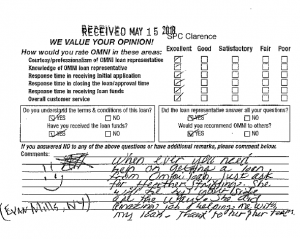 RECEIVED MAY 15 2018
SPC Clarence
WE VALUE YOUR OPINION!
How would you rate OMNI in these areas: Excellent Good Satisfactory Fair Poor
Courtesy/professionalism of OMNI loan representative
Knowledge of OMNI loan representative
Response time in receiving initial application
Response time in closing the loan/approval time
Response time in receiving loan funds
Overall customer service
Do you understand the terms & conditions of this loan? Did the loan representative answer all your questions?
YES NO YES NO
Have you received the loan funds? Would you recommend OMNI to others?
YES NO YES NO
If you answered NO to any of the above questions or have additional remarks, please comment below.
Comments: When ever you need
a loan,
from Omni Loan, Just ask
for Heather She
will
the
amazing job helping me with
my loan. Thank to her
(Evan Mills, NY)